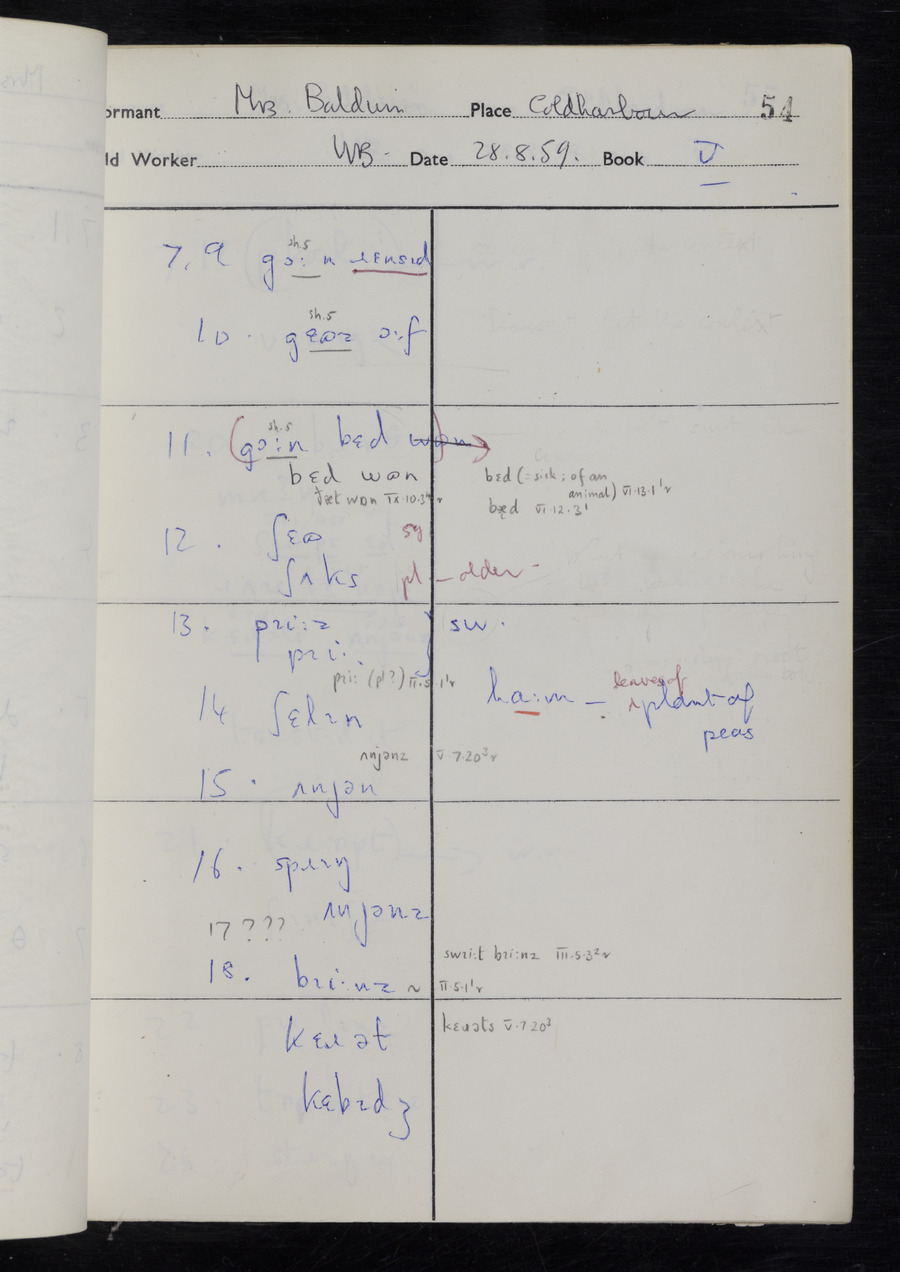 ormant Mrs. Baldwin Place Coldharbour 54
ld Worker WB. Date 28.8.59. Book V
sh.5
7.9 gɔ:ɪn ɹɛnsɪd
sh.5
10. gɛʊz ɔ:f
sh.5
11. (gɔ:ɪn bɛd wɒn)
bɛd wɒn
ðæt wɒn IX.10.3⁴r
bɛd (= sick; of an
animal) VI.13.1¹r
bæd VI.12.3¹
12. ʃɛʊ sg
ʃʌks pl – older –
13. pɪi:z } sw.
pɪi:
pɪi: (pl?) II.5.1¹r
14 ʃɛlɪn
ha:m – leaves of plant of
peas
ʌnjənz V.7.20³r
15. ʌnjən
16. spɹɪŋ
ʌnjənz
17 ???
18. bɪi:nz r II.5.1¹r
swɪi:t bɪi:nz III.5.3²r
kɛɹət kɛɹəts V.7.20³
kɛbɪdʒ